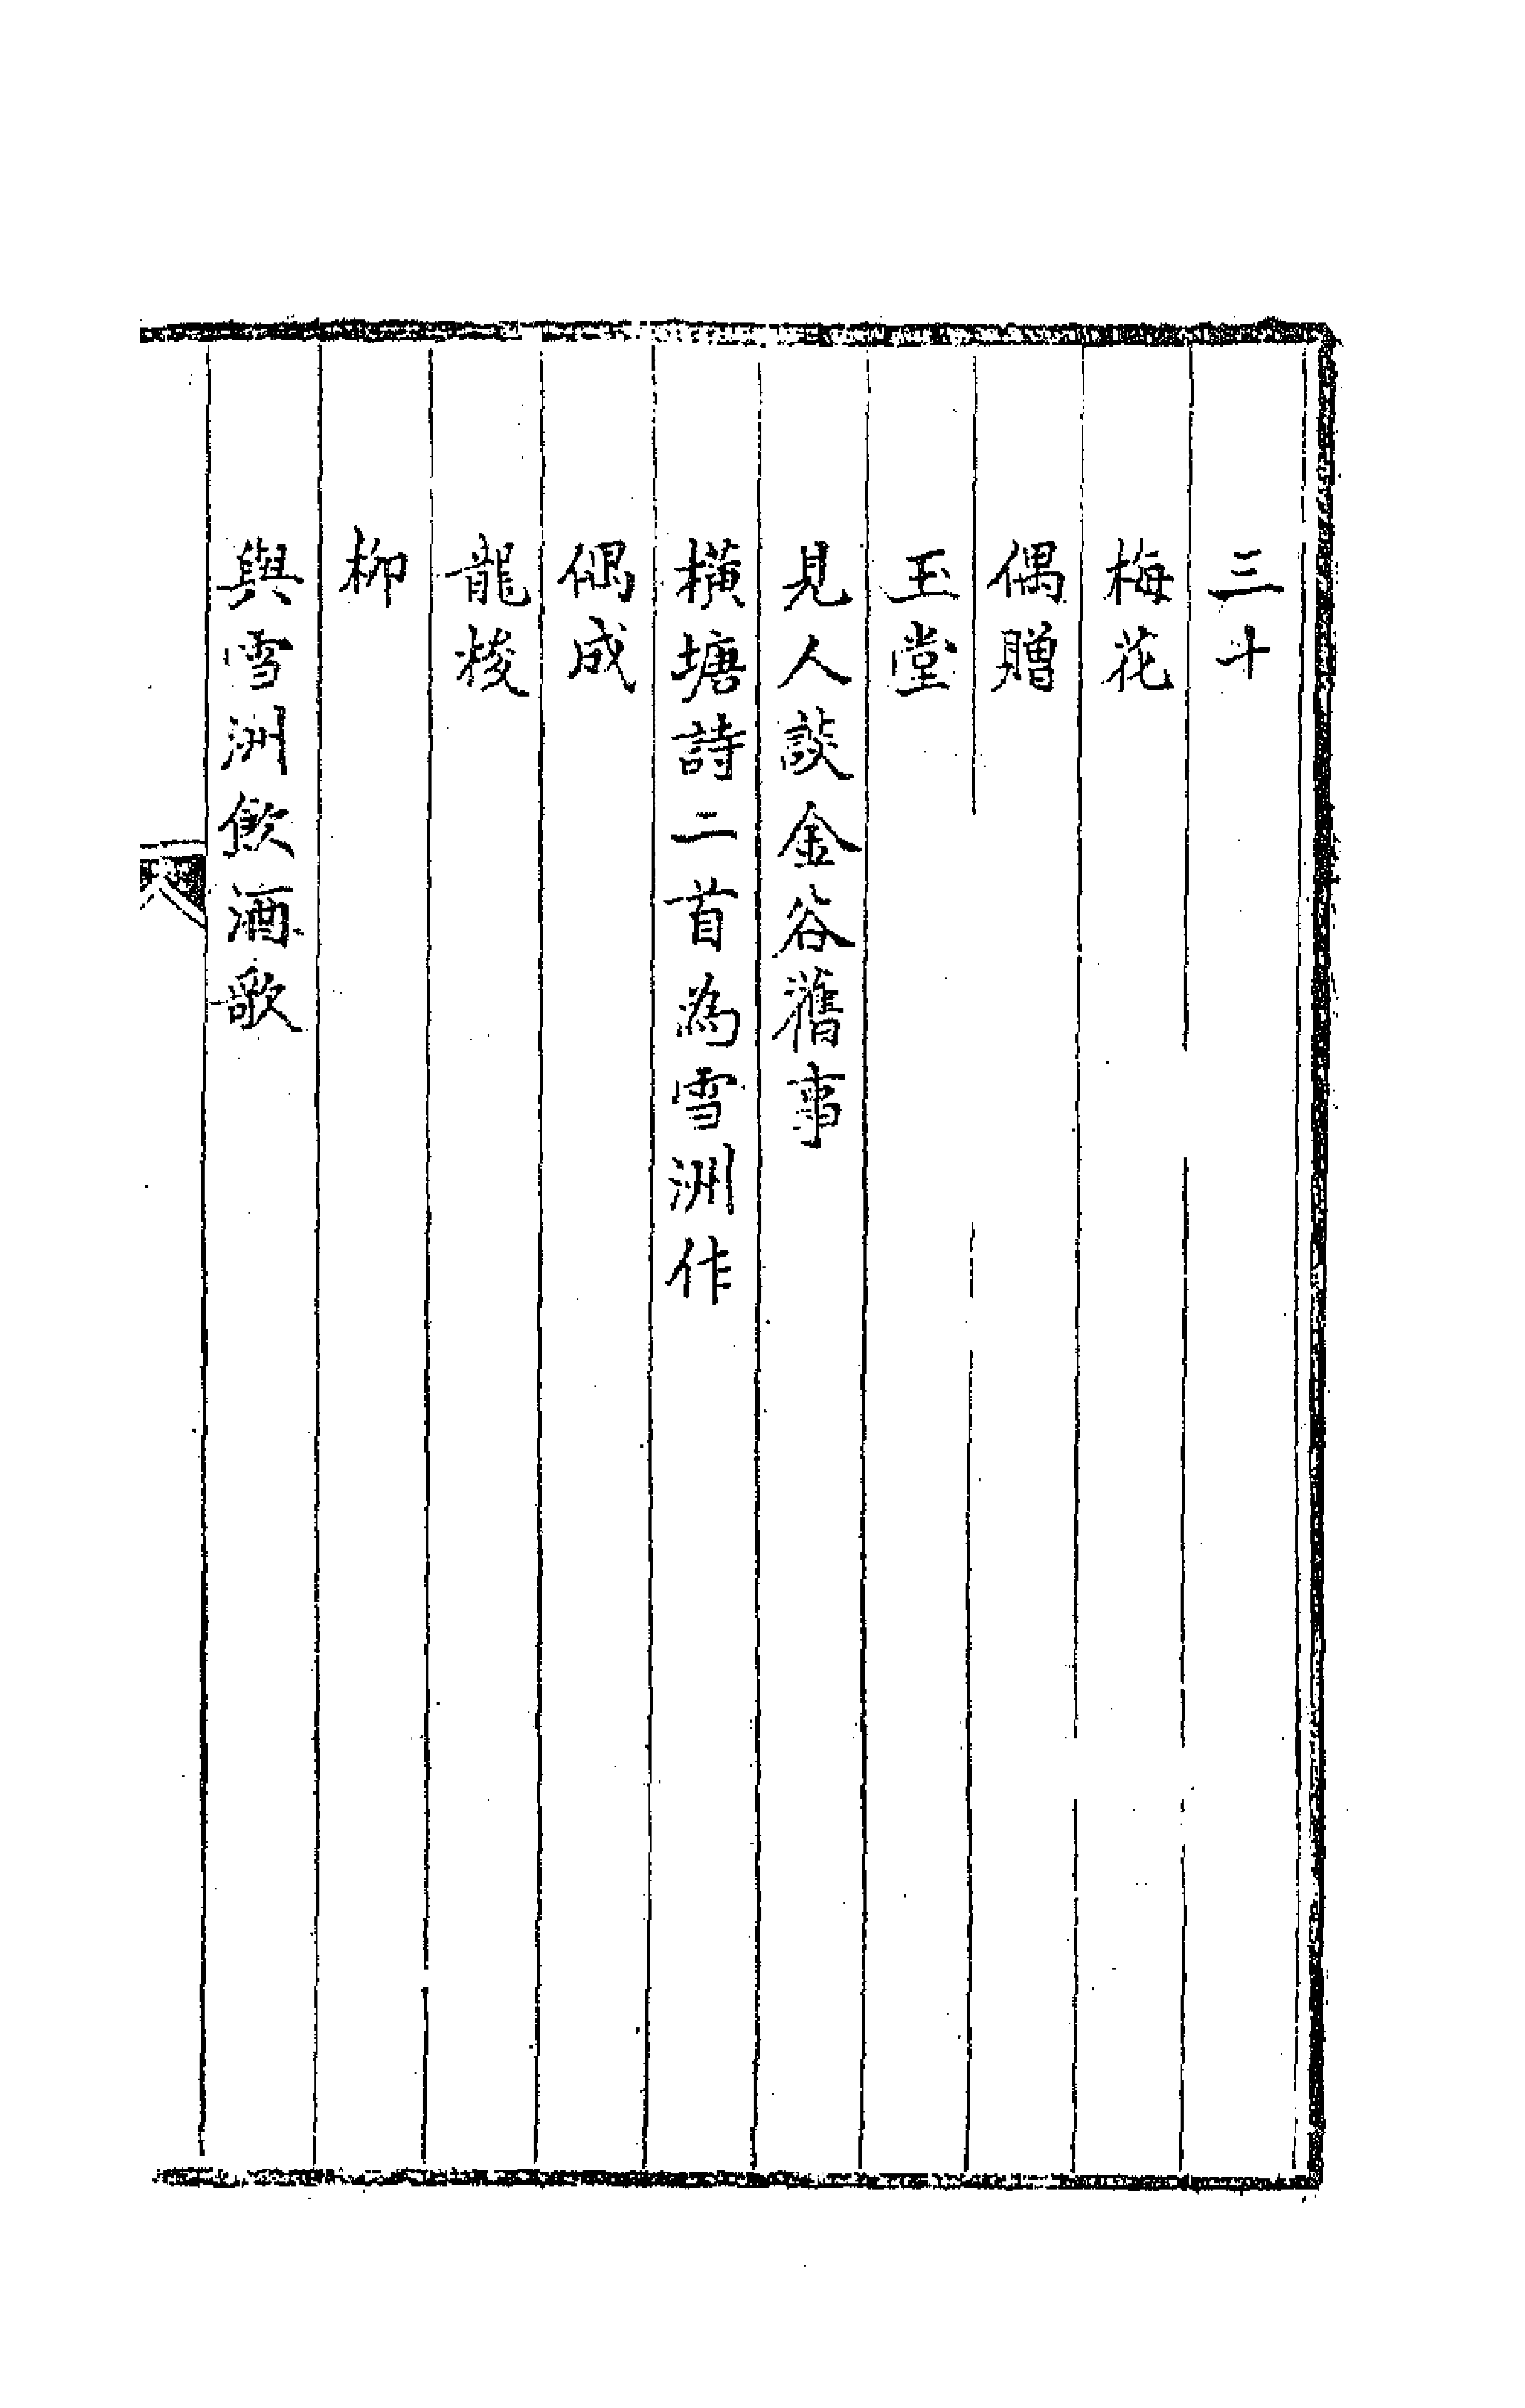 三斗
梅花
偶贈
玉堂
見人談金谷舊事
橫塘詩二首為雪洲作
偶成
龍梭
柳
與雪洲飲酒歌